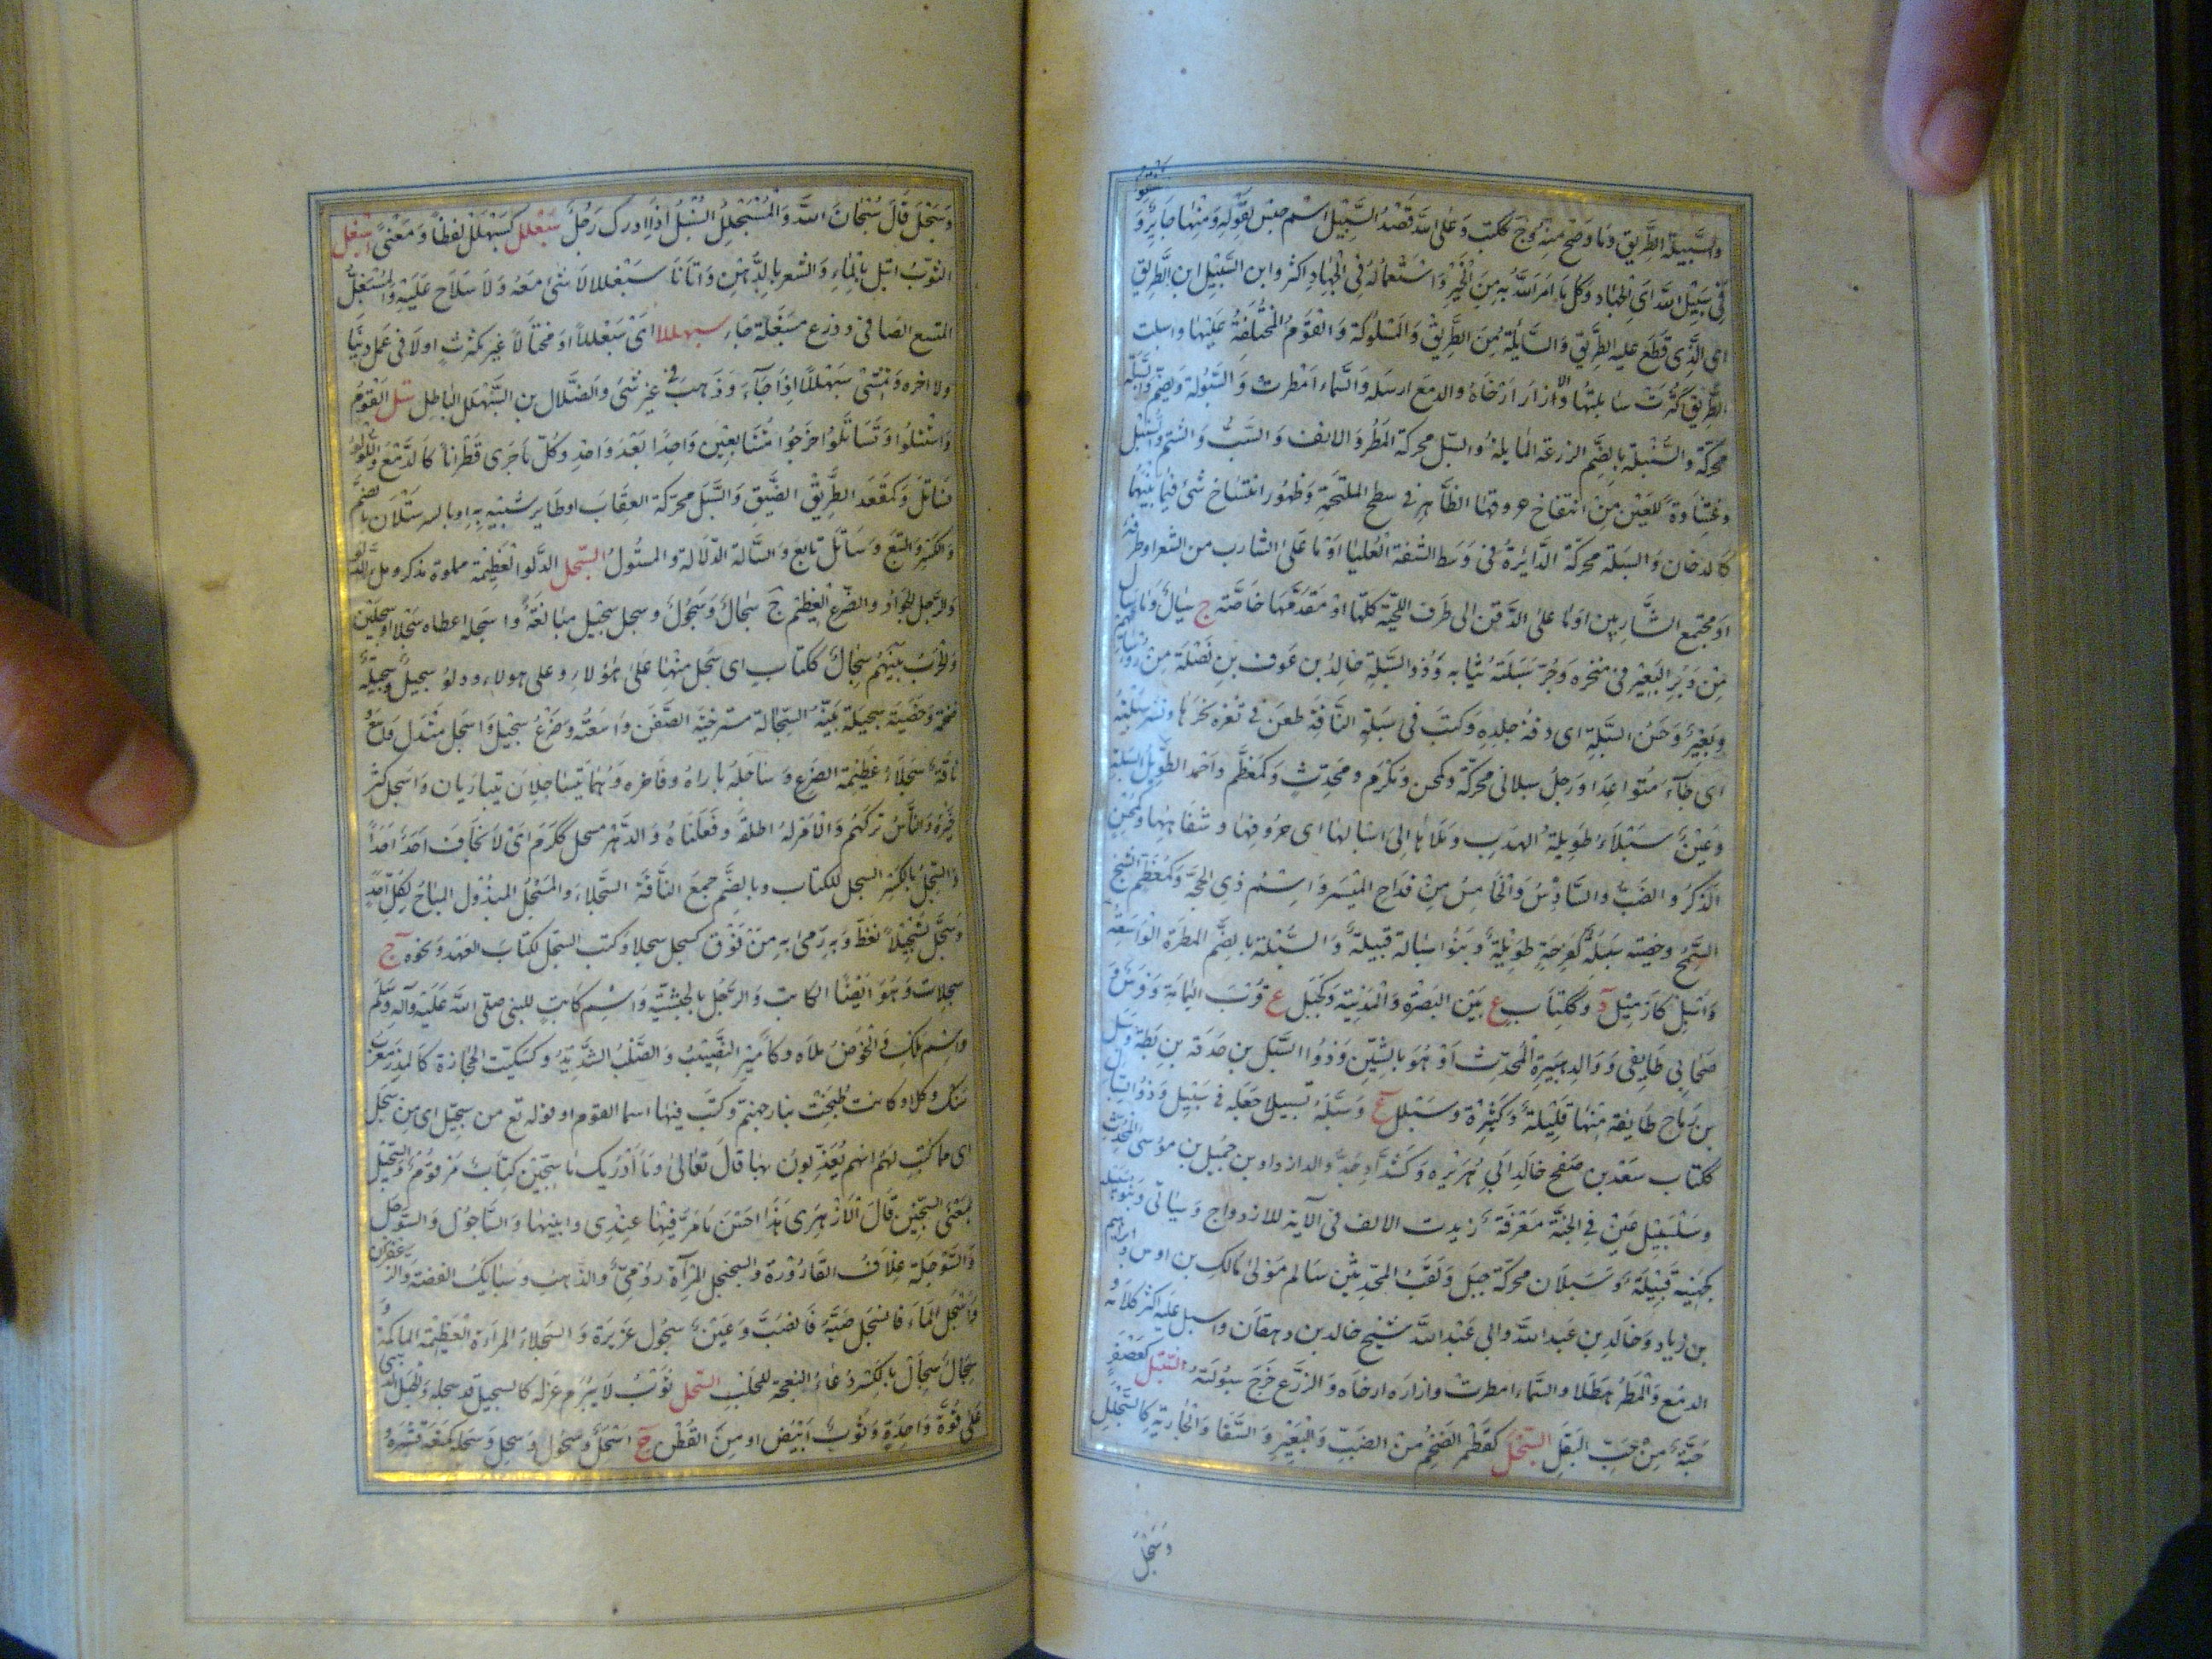 والسبيلة الطريق وما وضح منه ج ككتب وعلى الله قصد السبيل اسم جنس لقوله ومنها جائر و
في سبيل الله اي الجهاد وكل ما امر الله به من الخير واستعماله في الجهاد اكثر وابن السبيل ابن الطريق
اي الذي قطع عليه الطريق والسابلة من الطريق والمسلوكة والقوم المختلفة عليها واسبلت
الطريق كثرت سابلتها والازار ارخاه والدمع ارسله والسماء امطرت والسبولة ويضم والسبلة
محركة والسنبلة بالضم الزرعة المايلة والسبل محركة المطر والانف والسب والشتم والسنبل
وغشاوة للعين من انتفاخ عروقها الظاهر في سطح الملتحمة وظهور انتساج شئ فيما بينهما
كالدخان والسبلة محركة الدايرة في وسط الشفة العليا او ما على الشارب من الشعر او طرفه
او مجتمع الشاربين او ما على الذقن الى طرف اللحية كلها او مقدمها خاصة ج سبال وما سال
من وبر البعير في منخره وجر سبلته ثيابه وذو السبلة خالد بن عوف بن نضلة من رؤسائهم
وبعير حسن السبلة اي رقة جلده وكتب في سبلة الناقة طعن في ثغره نحرها ونشر سبلته
اي جاء متوعدا ورجل سبلاني محركة وكمحسن ومكرم ومحدث وكمعظم واحمد الطويل السبلة
وعين سبلاء طويلة الهدب وملأها الى اسبالها اي حروفها وشفاهها وكمحسن
الذكر والضب والسادس والخامس من قداح الميسر واسم ذي الحجة وكمعظم الشيخ
السمج وخصية سبلة كفرحة طويلة وبنو سبالة قبيلة والسبلة بالضم المطرة الواسعة
واسبل كازميل د وككتاب ع بين البصرة والمدينة وكجبل ع قرب اليمامة وفرس و
صحابي طايفي ووالد هبيرة المحدث او هو بالشين وذو السبل بن حدقة بن بطة وسبل
بن رباح طايفة منها قليلة وكثيرة وسبلل ع وسبله تسبيلا جعله في سبيل وذو السبال
ككتاب سعد بن صفيح خال ابي هريرة وكشداد جد والد ازداد بن جميل بن موسى المحدث
وسلسبيل عين في الجنة معرفة زيدت الالف في الآية للازدواج وسياتي وبنو سبيلة
كجهينة قبيلة وسبلان محركة جبل ولقب المحدثين سالم مولى مالك بن اوس وابراهيم
بن زياد وخالد بن عبد الله وابي عبد الله شيخ خالد بن دهقان واسبل عليه اكثر كلامه و
الدمع والمطر هطلا والسماء امطرت وازاره ارخاه والزرع خرج سبولته السبتل كعصفر
حبة من حب البقل السبحل كقمطر الضخم من الضب والبعير والسقا والجارية كالسبحلل
وسبحل
وسبحل قال سبحان الله والمسبحل السبل اذا ادرك رجل سبعلل كسبهلل لفظا ومعنى اسبغل
الثوب ابتل بالماء والشعر بالدهن واتانا سبغللا لا شئ معه ولا سلاح عليه والمسبغل
المتسع الضافي ودرع مسبغلة جاء سبهللا اي سبغللا او مختالا غير مكترث اولا في عمل دنيا
ولا اخره ويمشي سبهللا اذا جاء وذهب في غير شئ والضلال بن السبهلل الباطل ستل القوم
واستتلوا وتساتلوا خرجوا متتابعين واحدا بعد واحد وكل ما جرى قطرانا كالدمع واللؤلؤ
فساتل وكمقعد الطريق الضيق والستل محركة العقاب او طاير شبيه به او بالنسر ستلان بالضم
والكسر والتبع وساتل تابع والستالة الدلالة والمستول السجل الدلو العظيمة مملوة مذكر ومل الدلو
والرجل الجواد والضرع العظيم ج سجال وسجول وسجل سجيل مبالغة واسجله اعطاه سجلا او سجلين
والحرب بينهم سجال ككتاب اي سجل منها على هؤلاء وعلى هولاء ودلو سجيل وسجيلة
ضخمة وخصية سجيلة بينة السجالة مسترخية الصفن واسعته وضرع سجيل واسجل متدل واسع
ناقة سجلاء عظيمة الضرع وساجله باراه وفاخره وهما يتساجلان يتباريان واسجل كثر
خيره والناس تركهم والامر له اطلقه وفعلناه والدهر مسجل كمكرم اي لا يخاف احد احدا
والسجل بالكسر السجل للكتاب وبالضم جمع الناقة السجلاء والمسجل المبذول المباح لكل احد
وسجل تسجيلا انعظ وبه رمى به من فوق كسجل سجلا وكتب السجل لكتاب العهد ونحوه ج
سجلات وهو ايضا الكاتب والرجل بالحبشية واسم كاتب للنبي صلى الله عليه وآله وسلم
واسم ملك والحوض ملاه وكامير النصيب والصلب الشديد وكسكيت حجارة كالمدر معرب
سنك وكل او كانت طبخت بنار جهنم وكتب فيها اسما القوم او قوله تع من سجيل اي من سجل
اي مما كتب لهم انهم يعذبون بها قال تعالى وما أدريك ما سجين كتاب مرقوم والسجيل
بمعنى السجين قال الازهري هذا احسن ما مر فيها عندي وابينها والساجول والسوجل
والسوجلة غلاف القارورة والسجنجل المرآة رومي والذهب وسبايك الفضة والزعفران
واسجل الماء فانسجل صبه فانصب وعين سجول غزيرة والسجلاء المراءة العظيمة الماكمة و
سجال سجال بالكسر دعاء النعجة للحلب السحل ثوب لا يبرم غزله كالسحيل قد سحله والحبل الذي
على قوة واحدة وثوب ابيض او من القطن ج اسحل وسحول وسحل وسحله كمنعه قشره و